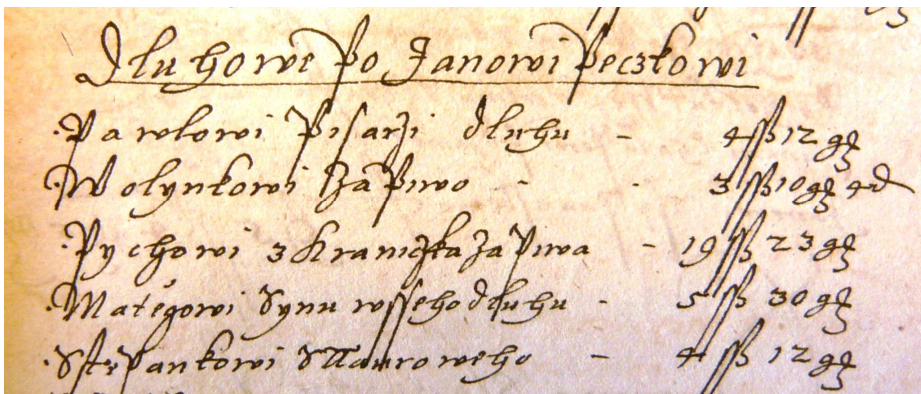 Dluhowe po Janowi Peczkowi
Pawlowi Pisarzi dluhu – 4 ßß 12 gҙ
Wolynkowi Za Piwo - - 3 ßß 10 gҙ 4 d
Pychowi z Kraniczka za Piwa – 19 ßß 23 gҙ
Matėgowi Synu wsseho dluhu - 5 ßß 30 gҙ
Sstěpankowi – 4 ßß 12 gҙ